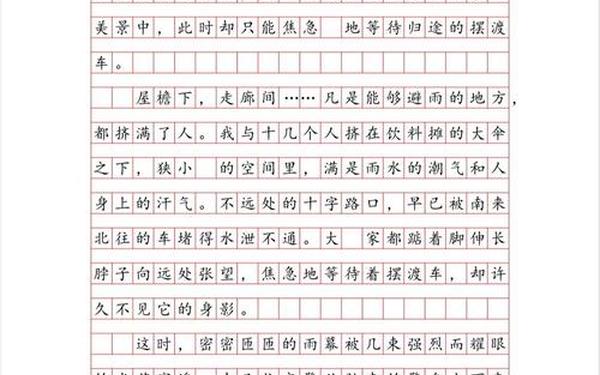 美景中，此时却只能焦急 地等待归途的摆渡
车。
屋檐下，走廊间……凡是能够避雨的地方，
都挤满了人。我与十几个人挤在饮料摊的大伞
之下，狭小 的空间里，满是雨水的潮气和人
身上的汗气。不远处的十字路口，早已被南来
北往的车堵得水泄不通。大 家都踮着脚伸长
脖子向远处张望，焦急地等待着摆渡车，却许
久不见它的身影。
这时，密密匝匝的雨幕被几束强烈而耀眼